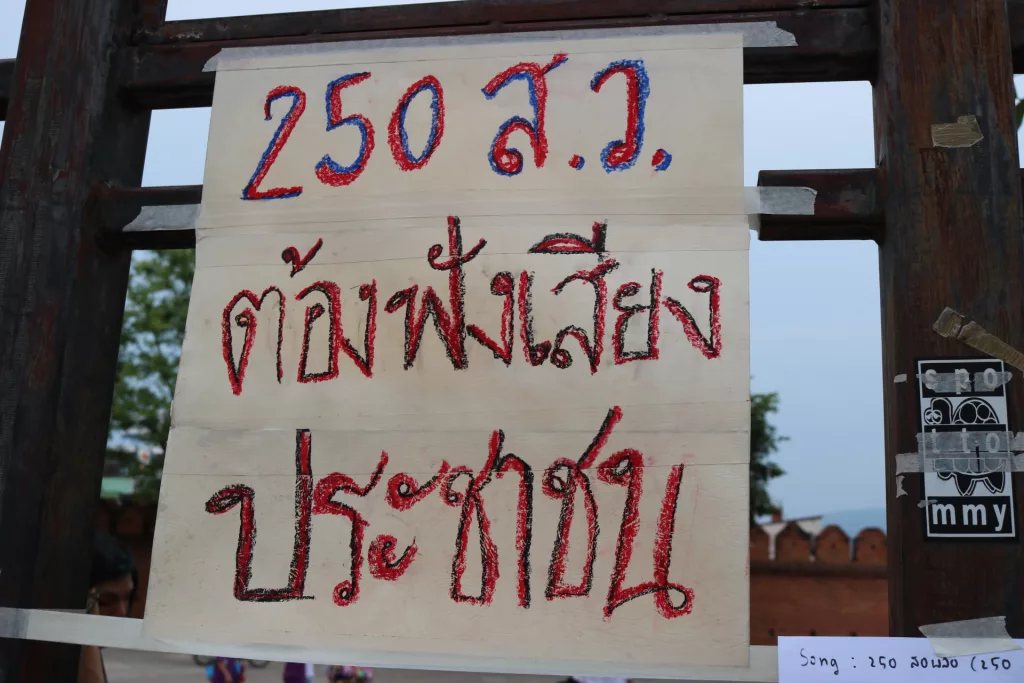 250 ส.ว.
ต้องฟังเสียง
ประชาชน
spo
tto
mmy
Song : 250 สอพลอ (250